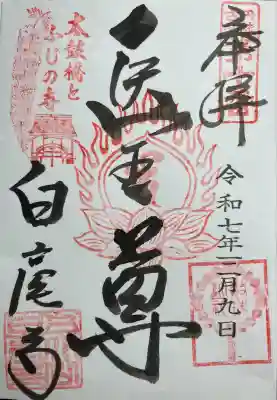 奉拝
令和七年三月九日
医王尊
太鼓橋と
ふじの寺
白毫寺